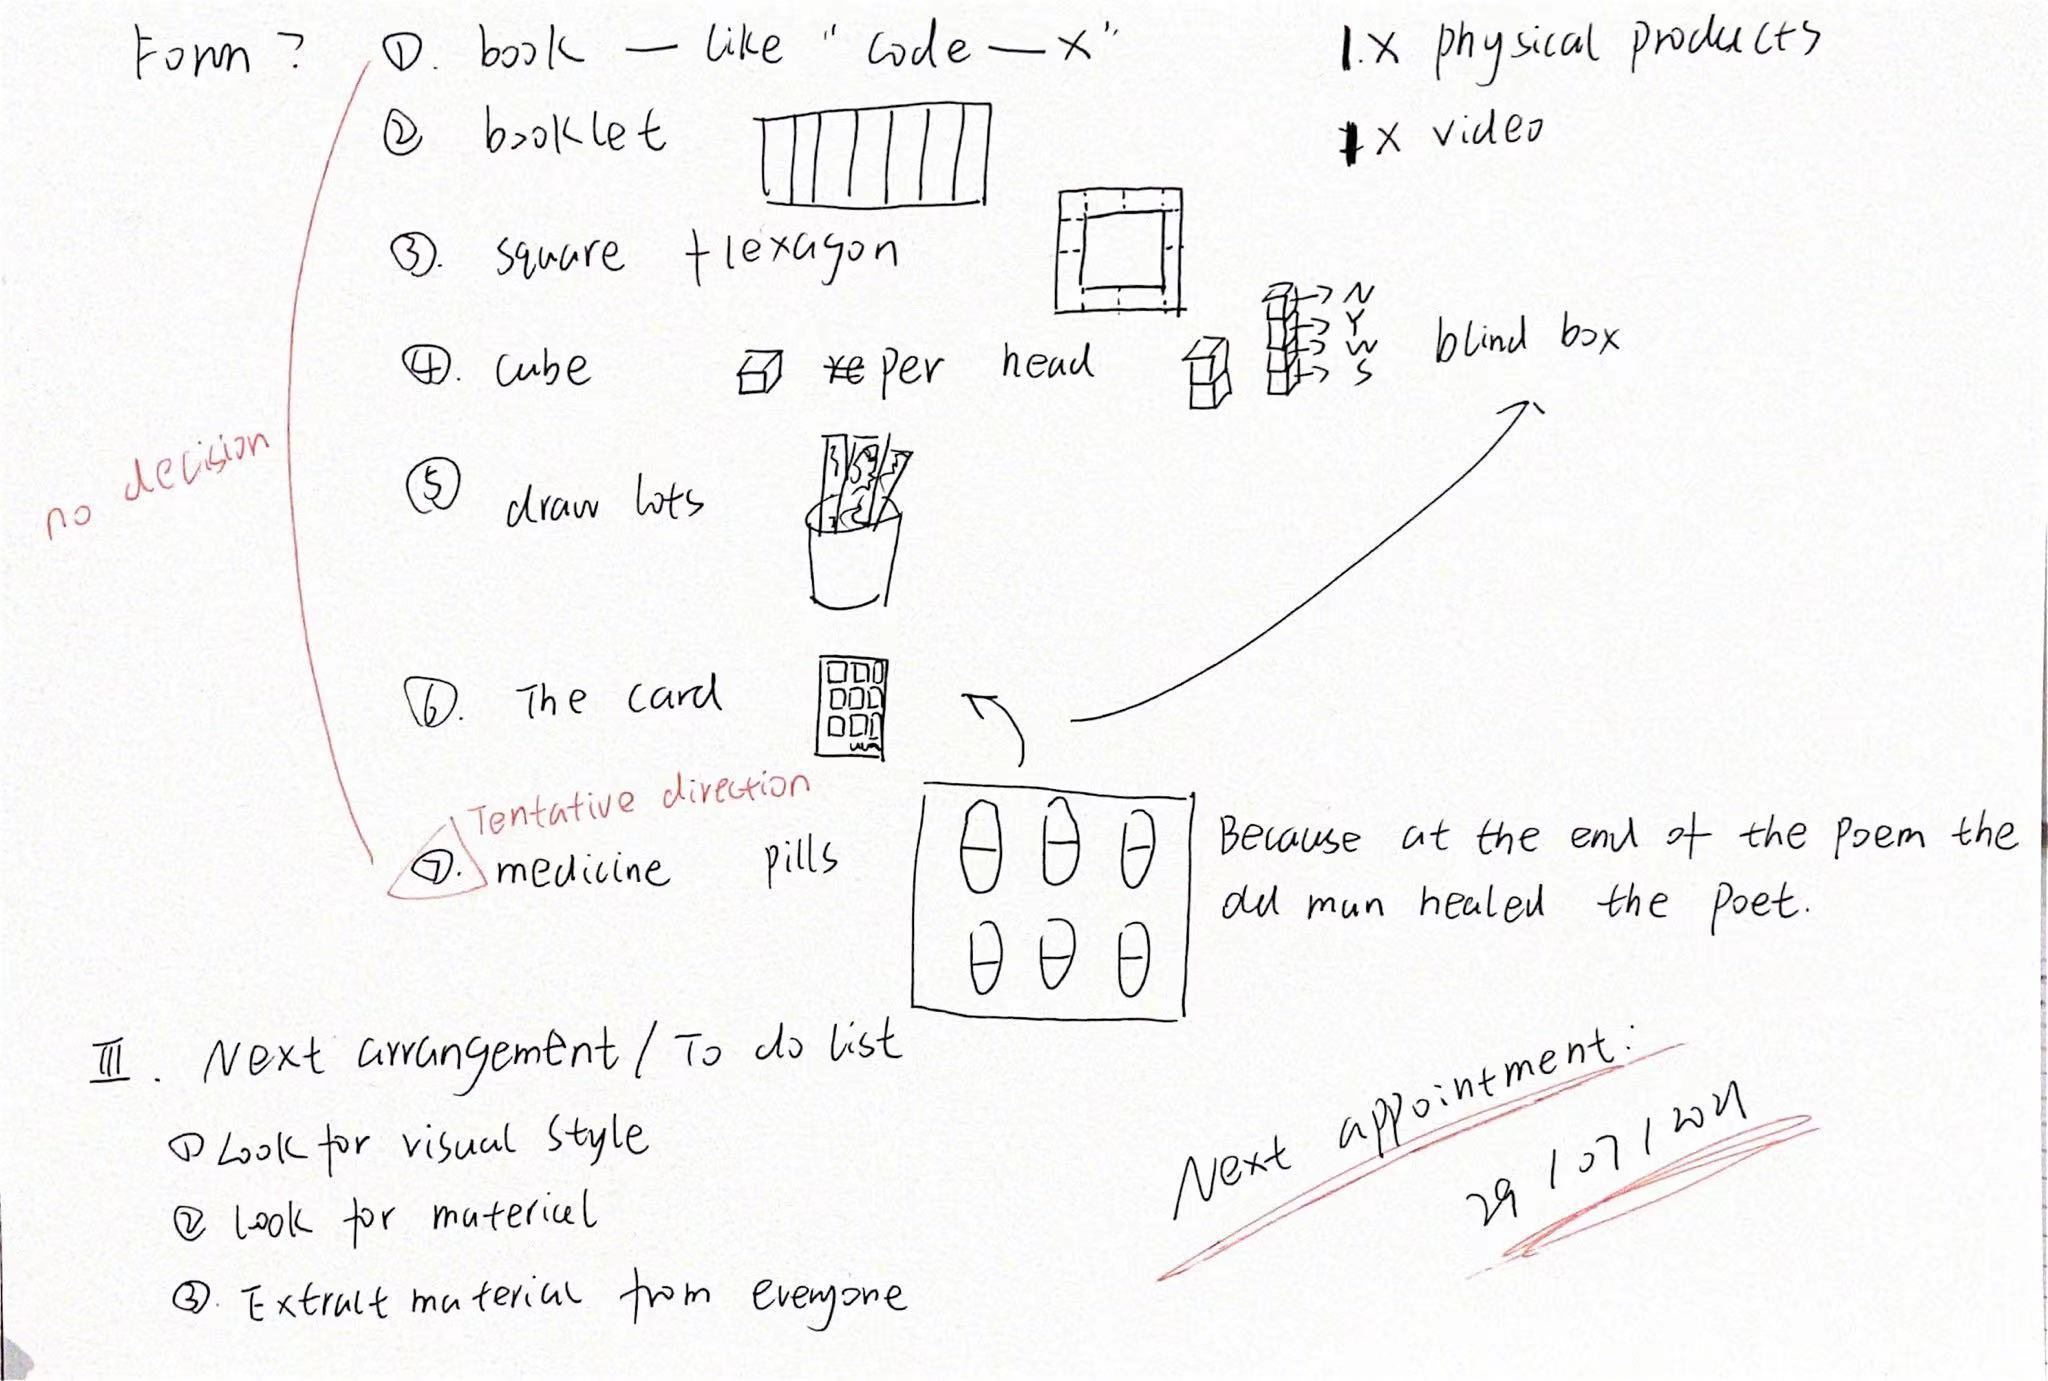 Form ? ①. book — like "code — x"
1. X physical products
② booklet
1 X video
③. square + lexagon
④. cube per head
N
Y
W
S
blind box
no decision
⑤ draw lots
⑥. The card
Tentative direction
⑦. medicine pills
Because at the end of the poem the
old man healed the poet.
III. Next arrangement / To do list
① Look for visual style
② look for material
③. Extract material from everyone
Next appointment:
29 / 07 / 2021